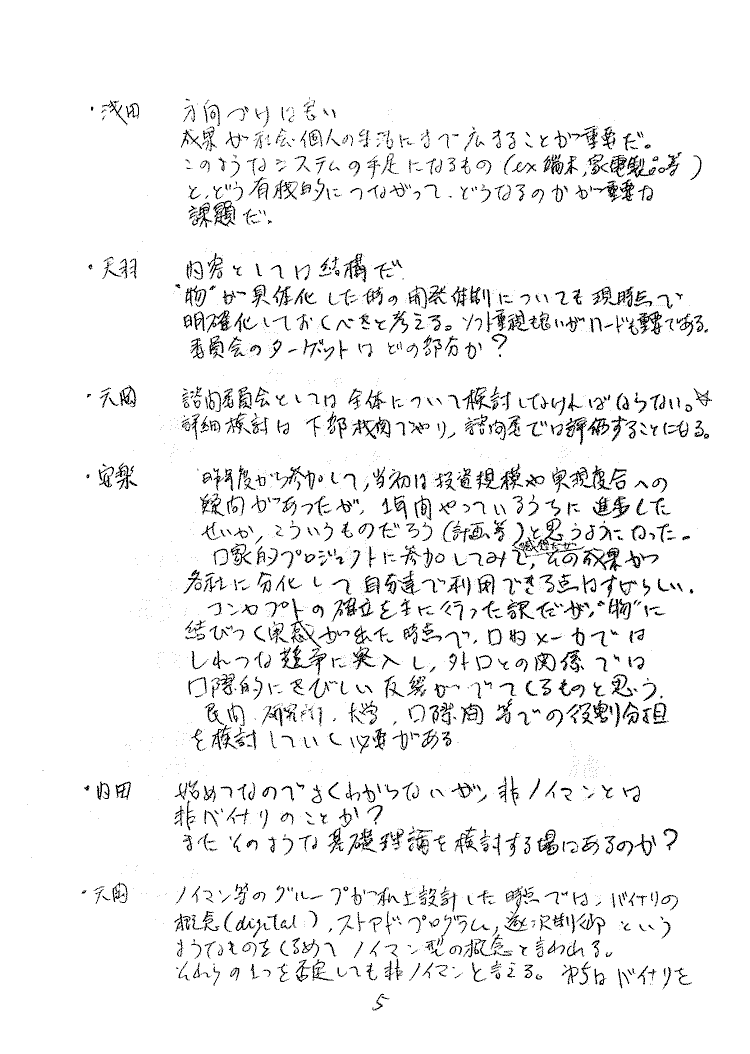 ・浅田 方向づけは良い
成果が社会・個人の生活にまで広まることが重要だ。
このようなシステムの手足になるもの(ex 端末,家電製品等)
と,どう有機的につながって、どうなるのかが重要な
課題だ。
・天羽 内容としては結構だ
"物"が具体化した時の開発体制についても現時点で
明確化しておくべきと考える。ソフト重視も良いがハードも重要である。
委員会のターゲットはどの部分か?
・元岡 諮問委員会としては全体について検討しなければならない。
詳細検討は下部機関でやり,諮問委では評価することになる。
・安楽 昨年度から参加して,当初は投資規模や実現度合への
疑問があったが,1年間やっているうちに進歩した
せいか,こういうものだろう(計画等)と思うようになった。
口家的プロジェクトに参加してみて,その成果が
各社に分化して自分達で利用できる点はすばらしい.
コンセプトの確立を主に行った訳だが,"物"に
結びつく実感が出た時点で,口内メーカでは
しれつな競争に突入し,外口との関係では
口際的にきびしい反響がでてくるものと思う.
民間,研究所,大学,口際間等での役割分担
を検討していく必要がある
・内田 始めてなのでよくわからないが,非ノイマンとは
非バイナリのことか?
またそのような基礎理論を検討する場はあるのか?
・元岡 ノイマン等のグループが机上設計した時点では,バイナリの
概念(digital),ストアドプログラム,逐次制御という
ようなものをくるめてノイマン型の概念と言われる。
それらの1つを否定しても非ノイマンと言える。 バイナリを
5